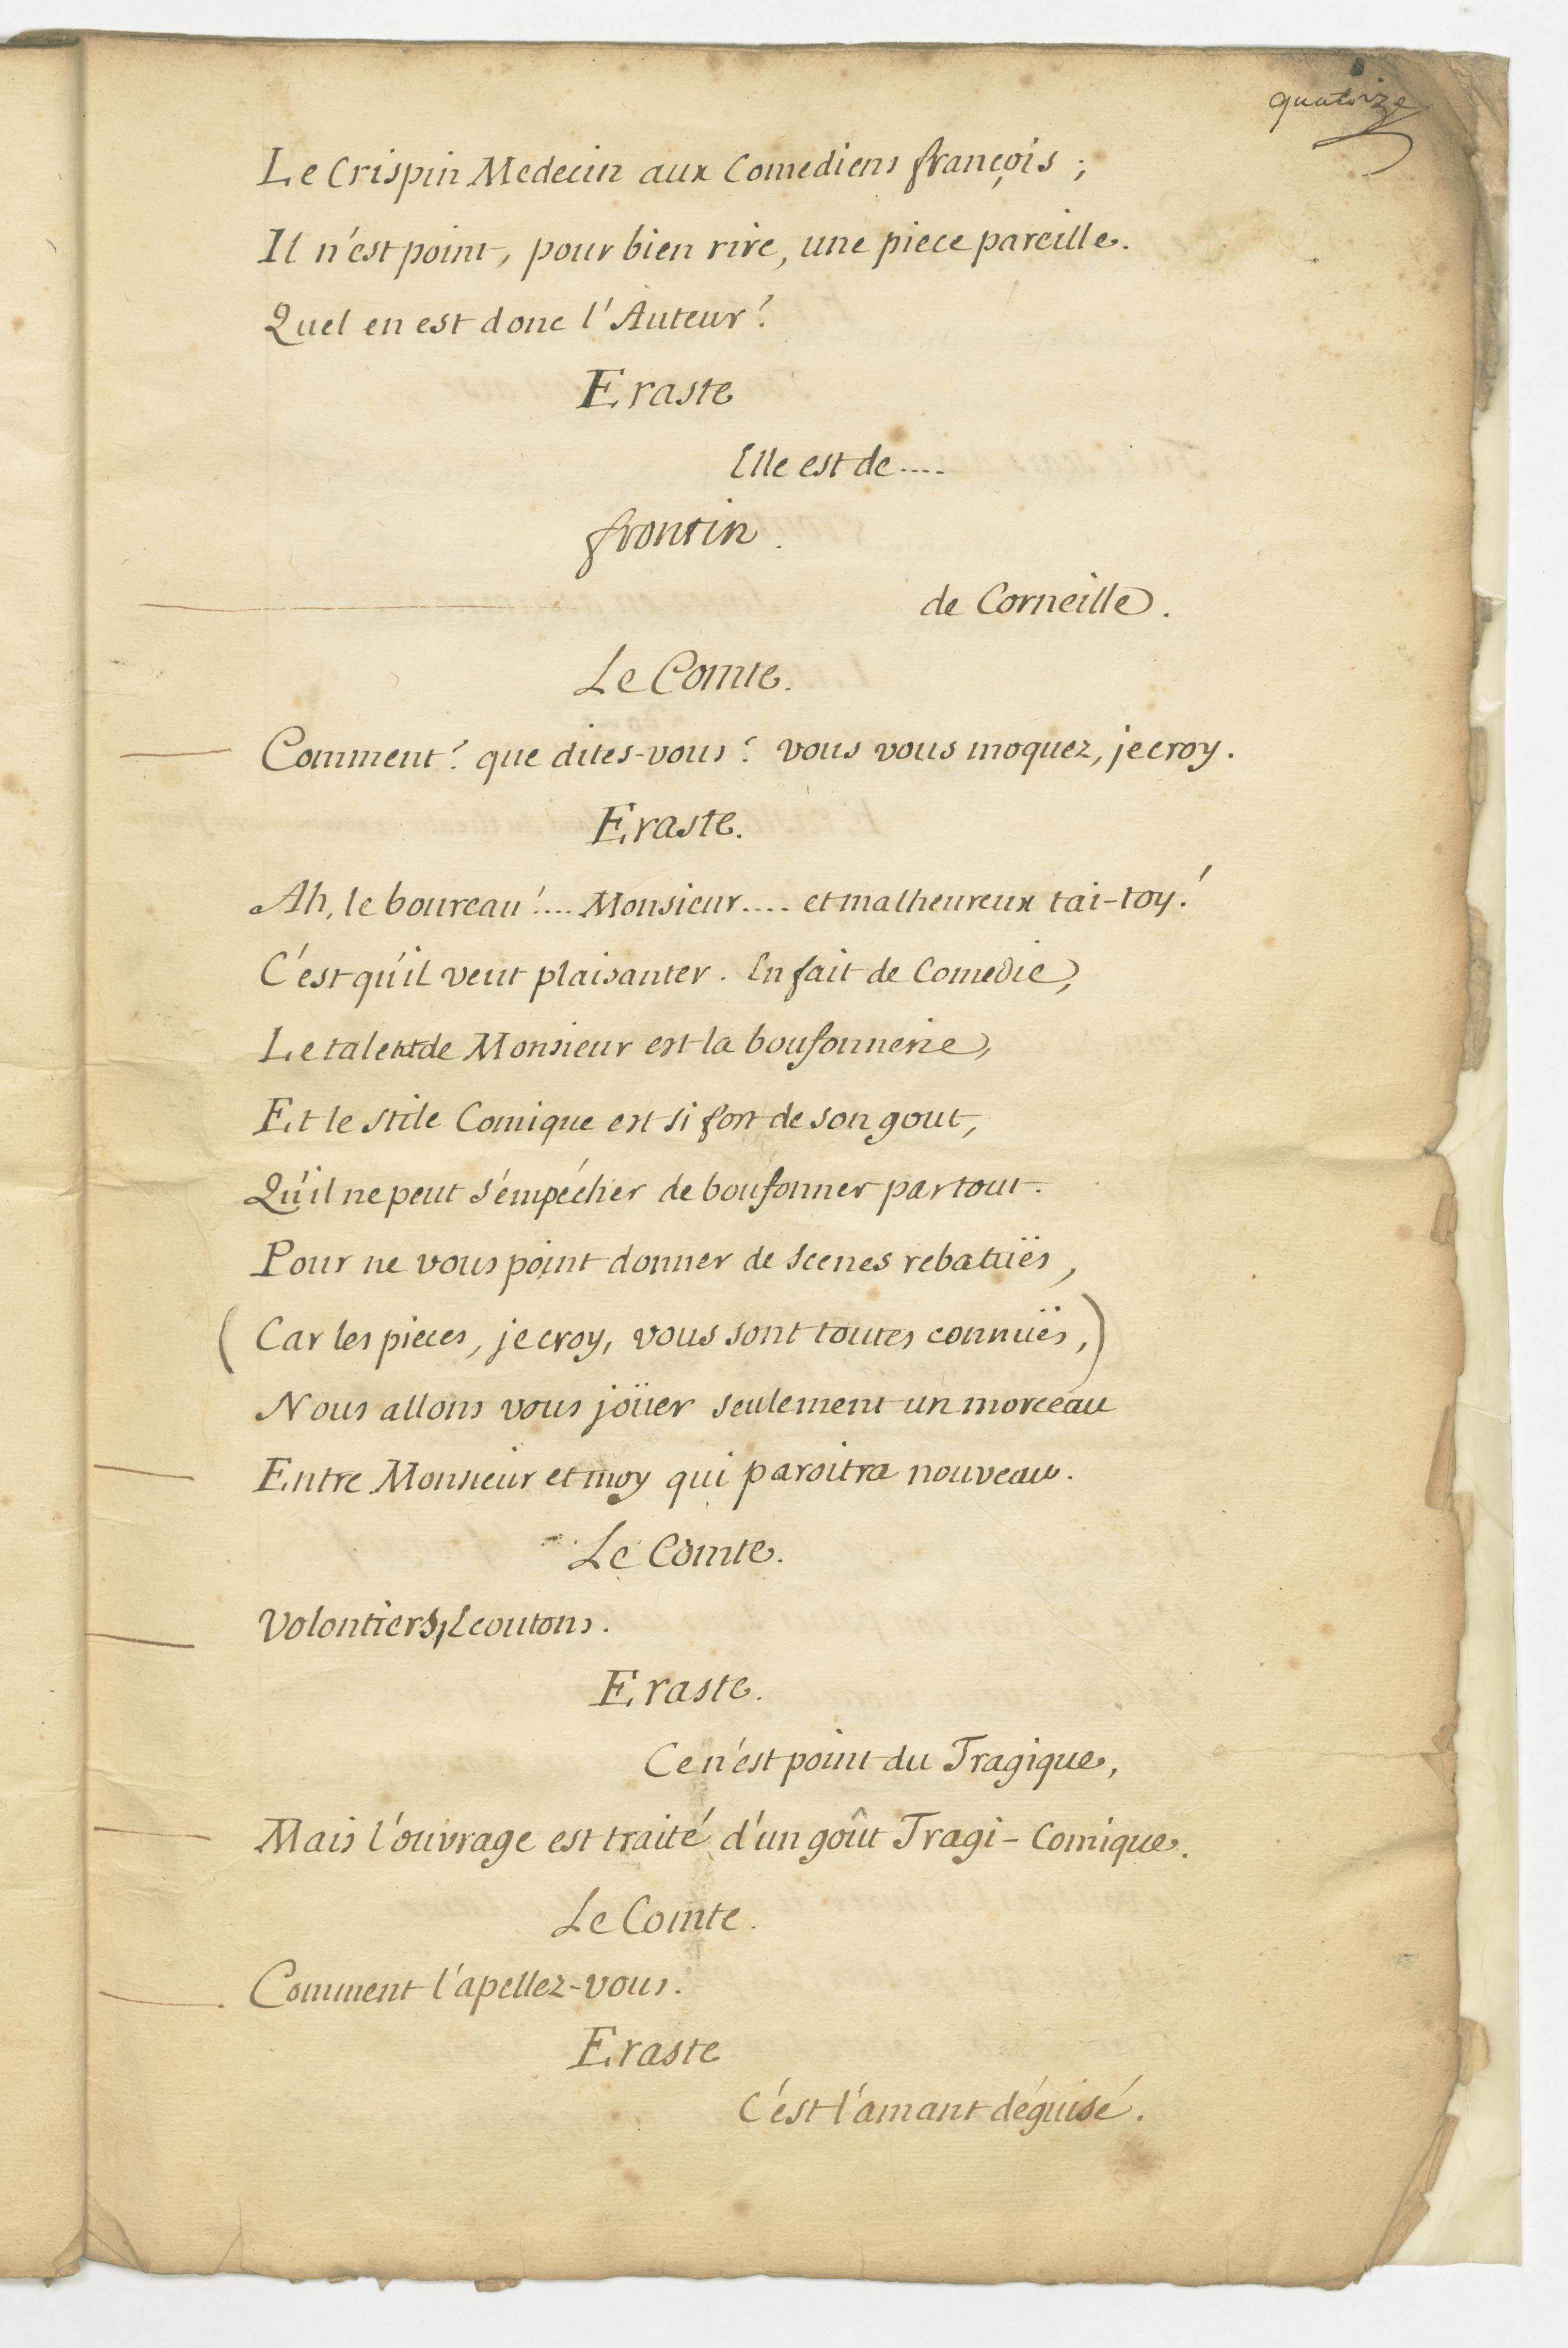 quatorze
Le Crispin Medecin aux Comediens françois ;
Il n'est point, pour bien rire, une piece pareille.
Quel en est donc l'Auteur?
Eraste
Elle est de ....
frontin.
de Corneille.
Le Comte.
Comment? que dites-vous? vous vous moquez, je croy.
Eraste.
Ah, le boureau!.... Monsieur.... et malheureux tai-toy!
C'est qu'il veut plaisanter. En fait de Comedie,
Le talent de Monsieur est la boufonnerie,
Et le stile Comique est si fort de son gout,
Qu'il ne peut s'empécher de boufonner partout.
Pour ne vous point donner de scenes rebatuës,
(Car les pieces, je croy, vous sont toutes connuës,)
Nous allons vous joüer seulement un morceau
Entre Monsieur et moy qui paroitra nouveau.
Le Comte.
Volontiers, Ecoutons.
Eraste.
Ce n'est point du Tragique,
Mais l'ouvrage est traité d'un goût Tragi-Comique.
Le Comte.
Comment l'apellez-vous.
Eraste
C'est l'amant déguisé.